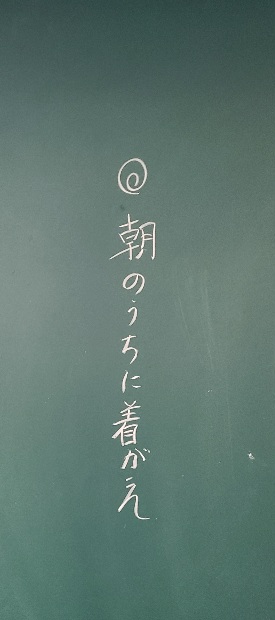 ◎朝のうちに着がえ